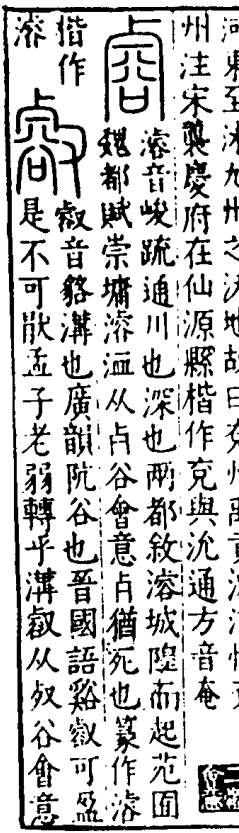 州注宋襲慶府在仙源縣楷作兗與沇通方音奄
㕡
濬音峻疏通川也深也兩都敘濬城隍而起苑囿
魏都賦崇墉濬洫从占谷會意占猶死也篆作濬
楷作
濬
叡
叡音貉溝也廣韻阬谷也晉國語谿叡可盈
是不可猒孟子老弱轉乎溝叡从𣦻谷會意